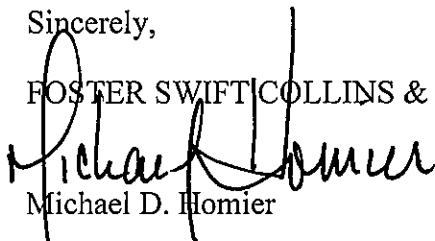 Sincerely,
FOSTER SWIFT COLLINS &
Michael Homier
Michael D. Homier